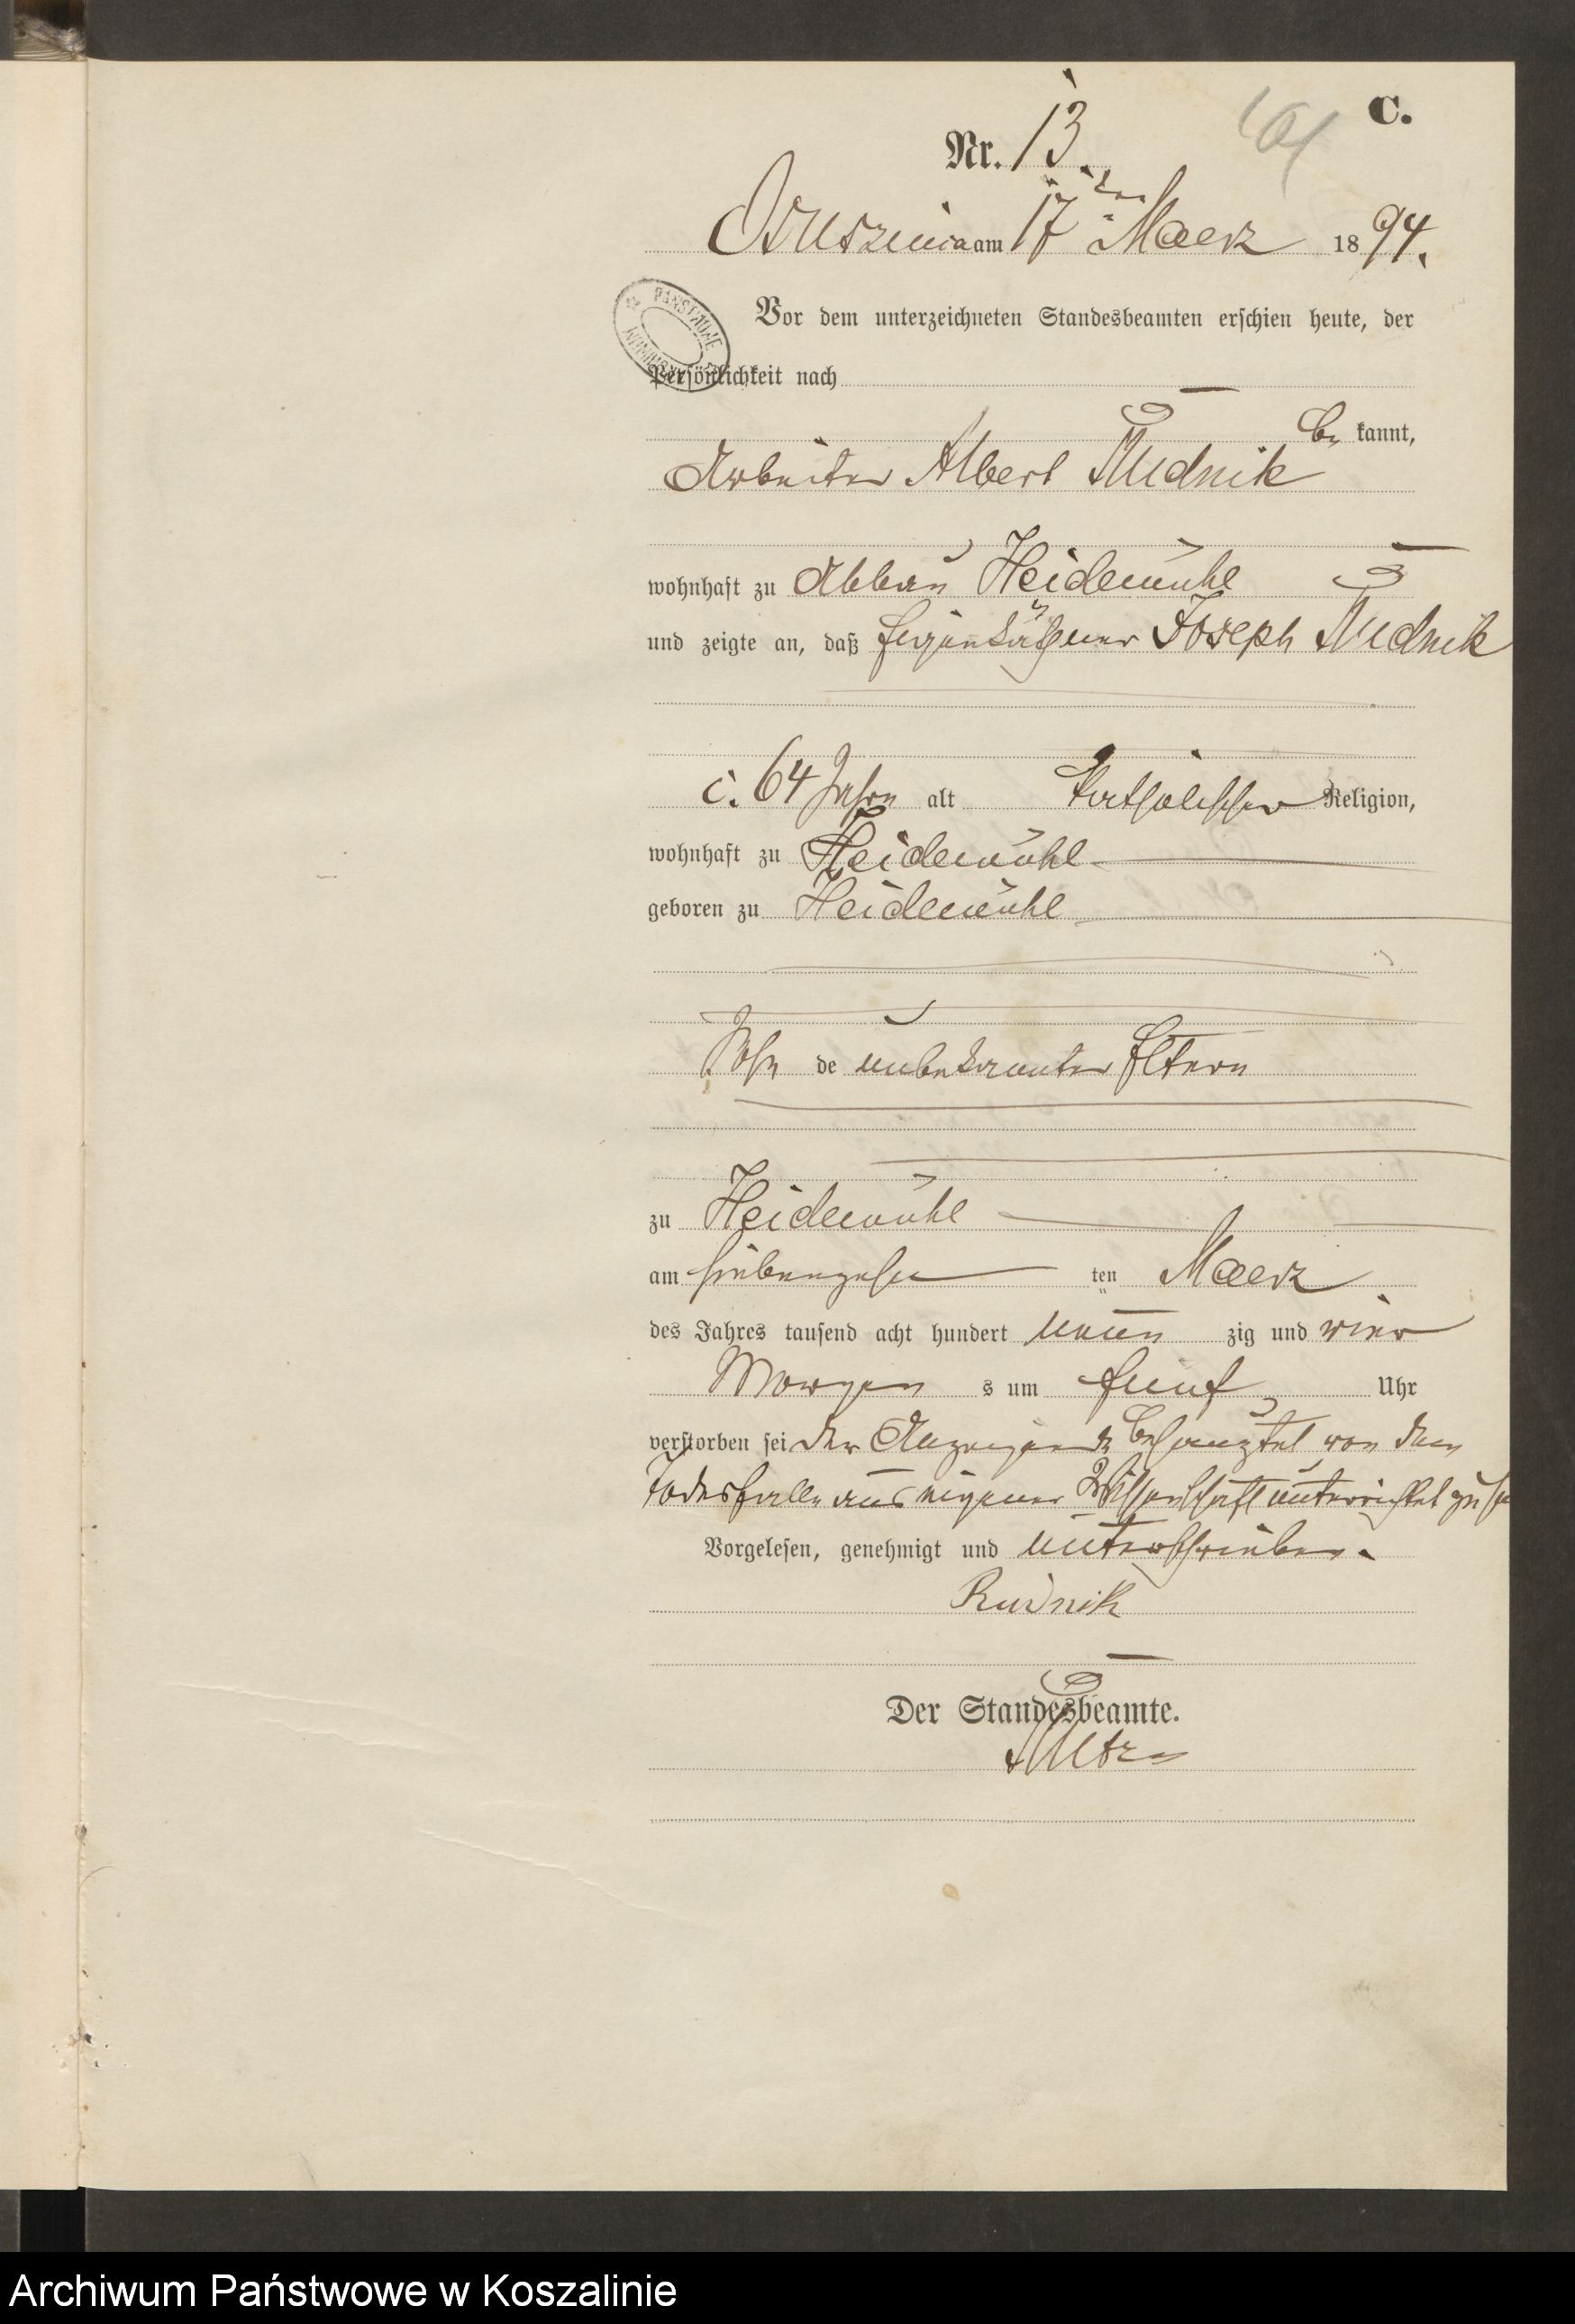 C.
161
Nr. 13.
Bruszenica am 17ten Maerz 1894.
PAŃSTWOWE
Vor dem unterzeichneten Standesbeamten erschien heute, der
Persönlichkeit nach
be kannt,
Arbeiter Albert Rudnik
wohnhaft zu Abbau Heidemühl
und zeigte an, daß Eigenkäthner Joseph Rudnik
c. 64 Jahre alt katholischer Religion,
wohnhaft zu Heidemühl
geboren zu Heidemühl
Sohn de unbekannter Eltern
zu Heidemühl
am siebenzehn ten Maerz
des Jahres tausend acht hundert neun zig und vier
Morgen s um fünf Uhr
verstorben sei der Anzeigende behauptet von dem
Todesfalle aus eigener Wissenschaft unterrichtet zu
Vorgelesen, genehmigt und unterschrieben.
Rudnik
Der Standesbeamte.
Archiwum Państwowe w Koszalinie